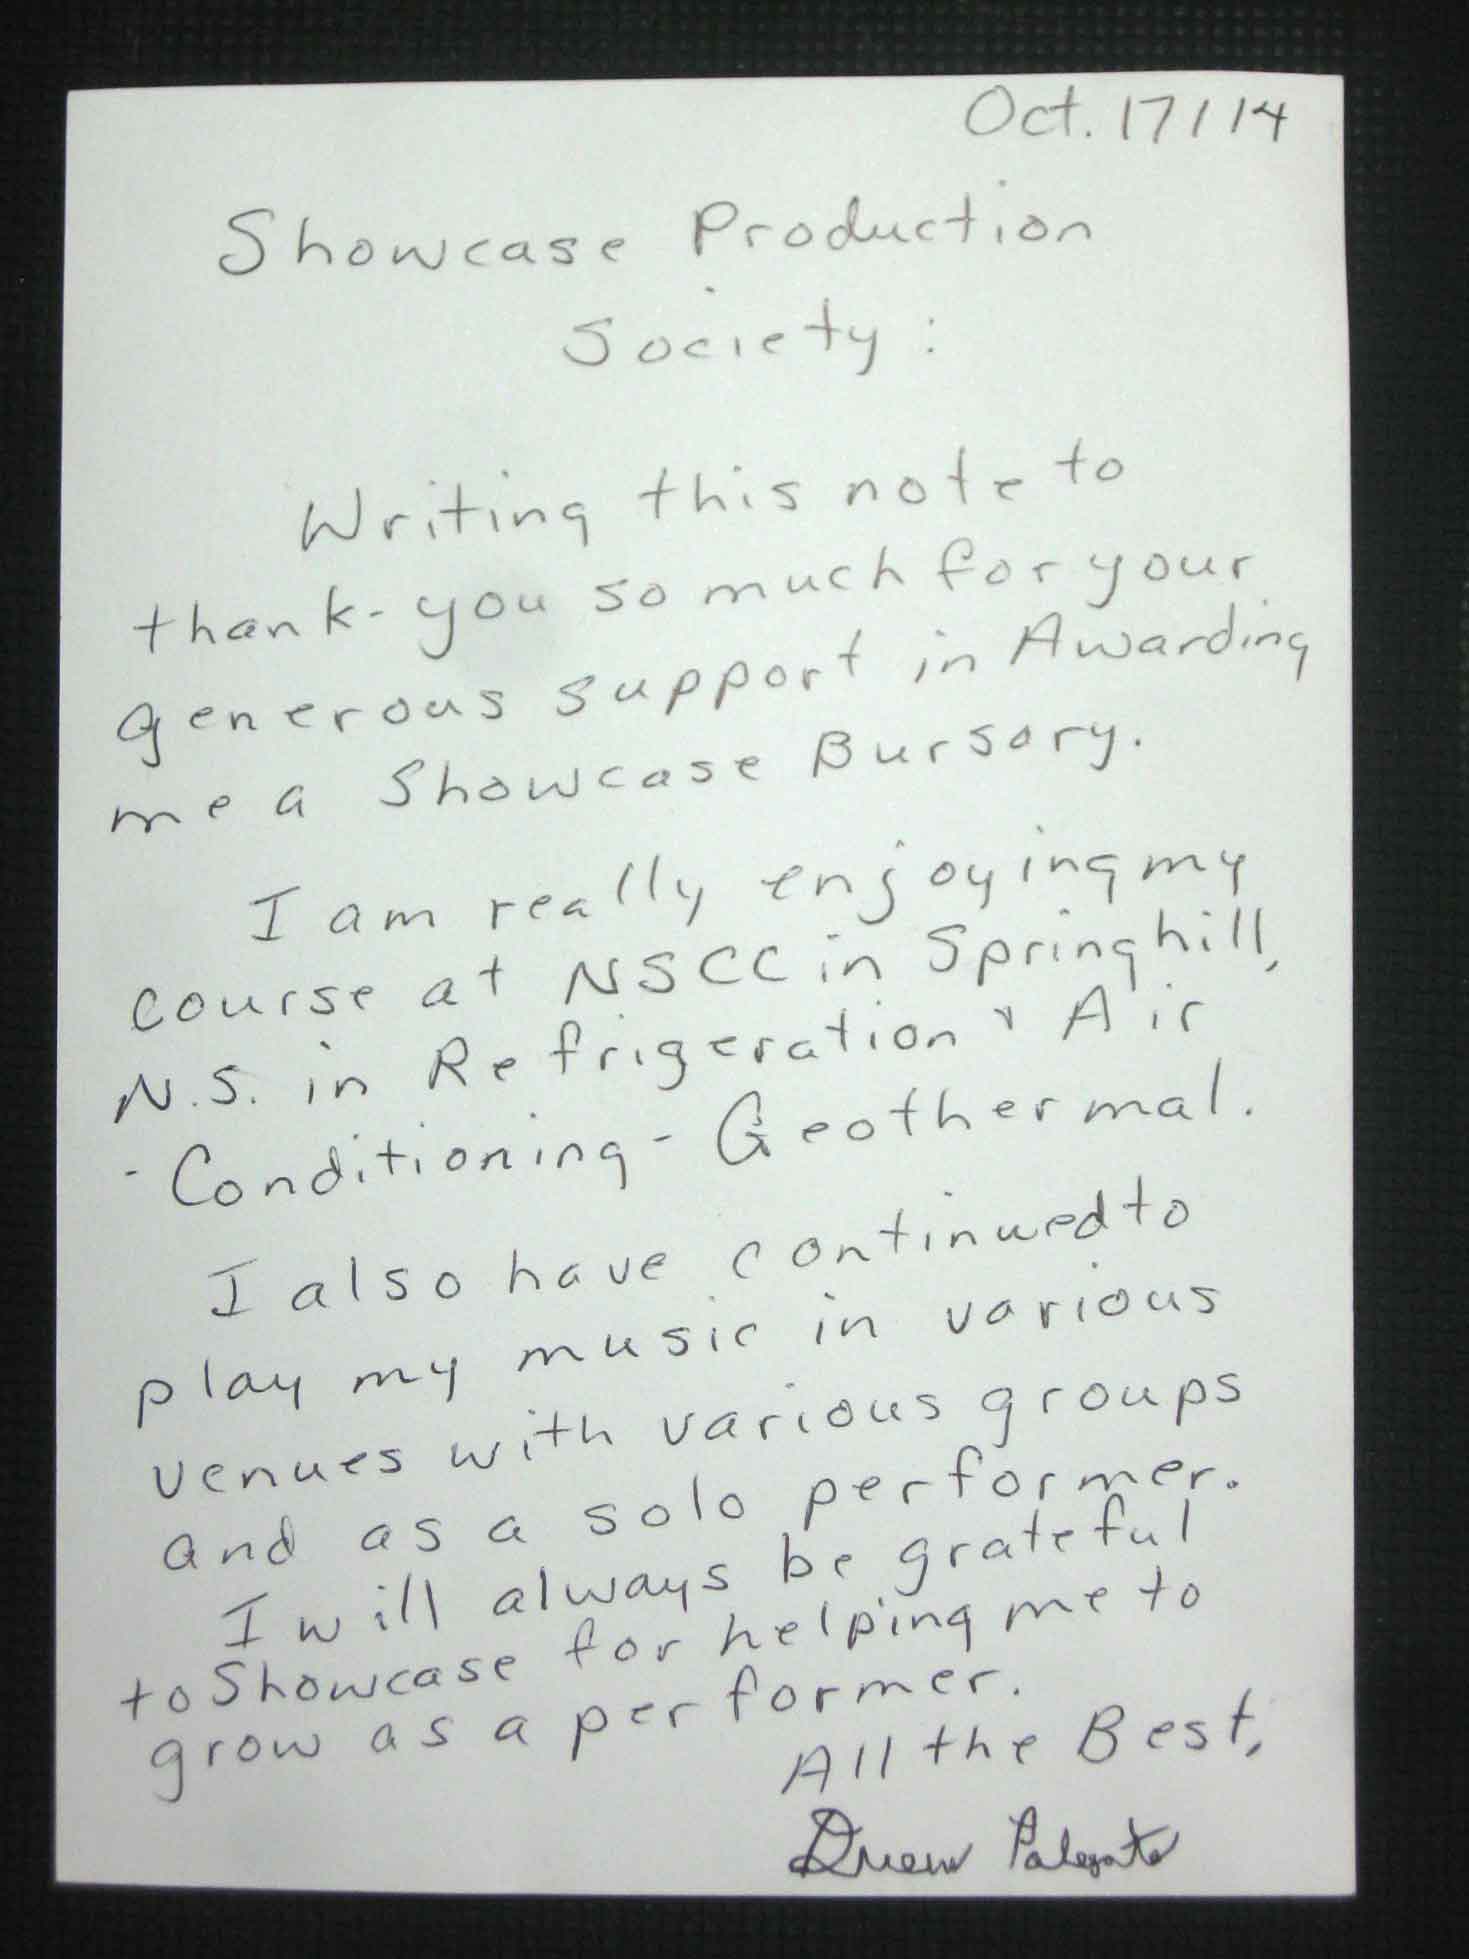 Oct. 17/14
Showcase Production
Society:
Writing this note to
thank-you so much for your
generous support in Awarding
me a Showcase Bursory.
I am really enjoying my
course at NSCC in Springhill,
N.S. in Refrigeration & Air
-Conditioning - Geothermal.
I also have continued to
play my music in various
venues with various groups
and as a solo performer.
I will always be grateful
to Showcase for helping me to
grow as a performer.
All the Best,
Drew